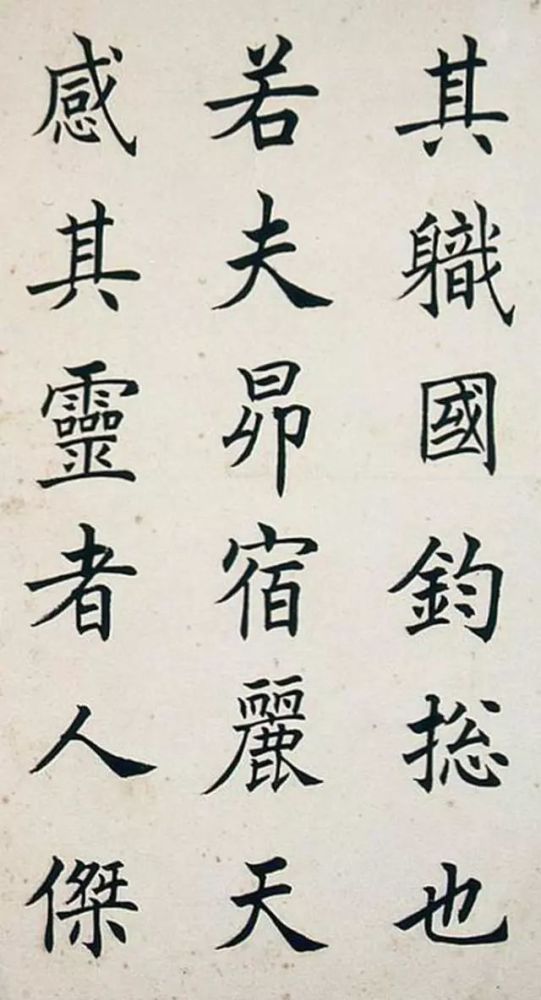 其軄國鈞捴也
若夫昴宿麗天
感其靈者人傑